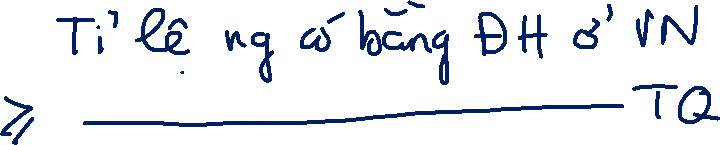 Tỉ lệ ng có bằng ĐH ở VN
≥ ___________ TQ